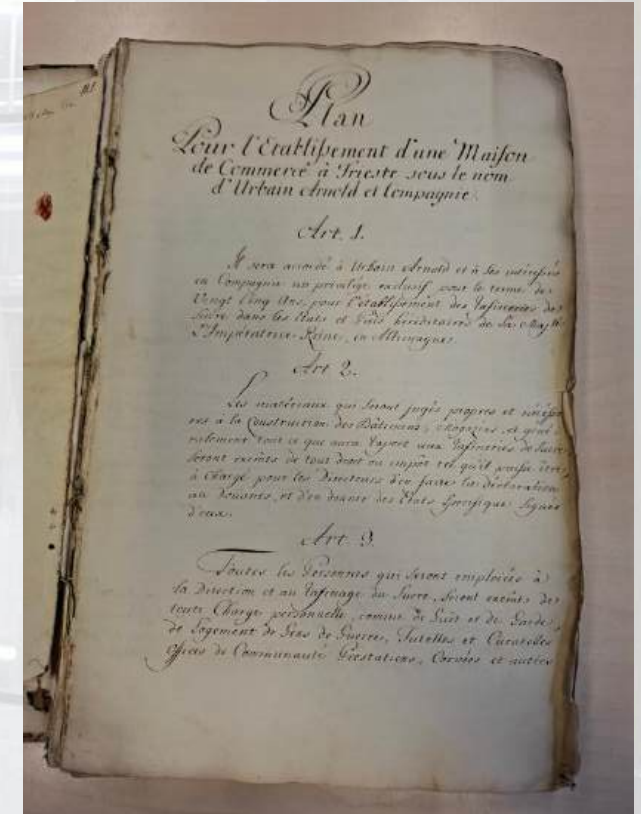 Plan
Pour l'Etablißement d'une Maison
de Commerce à Trieste sous le nom
d'Urbain Arnold et Compagnie.
Art. 1.
Il sera accordé à Urbain Arnold et à ses intéressés
en Compagnie un privilège exclusif pour le terme de
Vingt Cinq Ans, pour l'établißement des Rafineries de
Sucre dans les Etats et Païs héréditaires de Sa Majté
L'Impératrice Reine, en Allemagne.
Art 2.
Les matériaux qui seront jugés propres et nécess
res à la Construction des Bâtimens, et géné
ralement tout ce que aura raport aux Rafineries de Sucre
seront exemts de tout droit ou impôt tel qu'il puisse être
à Charge pour les Directeurs d'en faire la déclaration
au Douanes, et d'en donner des Etats Specifique signés
d'eux.
Art. 3.
Toutes les Personnes qui seront emploiées à
la Direction et au Rafinage du Sucre, seront exemts de
toute Charge personnelle, comme de Guet et de Garde
de Logement de Gens de Guerre, Tutelles et Curatelles
Offices de Communauté Prestations, Corvées et autres